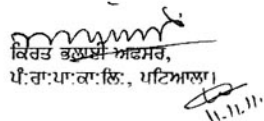 ਕਿਰਤ ਭਲਾਈ ਅਫਸਰ,
ਪੰ:ਰਾ:ਪਾ:ਕਾ:ਲਿ:, ਪਟਿਆਲਾ।
11.11.11.